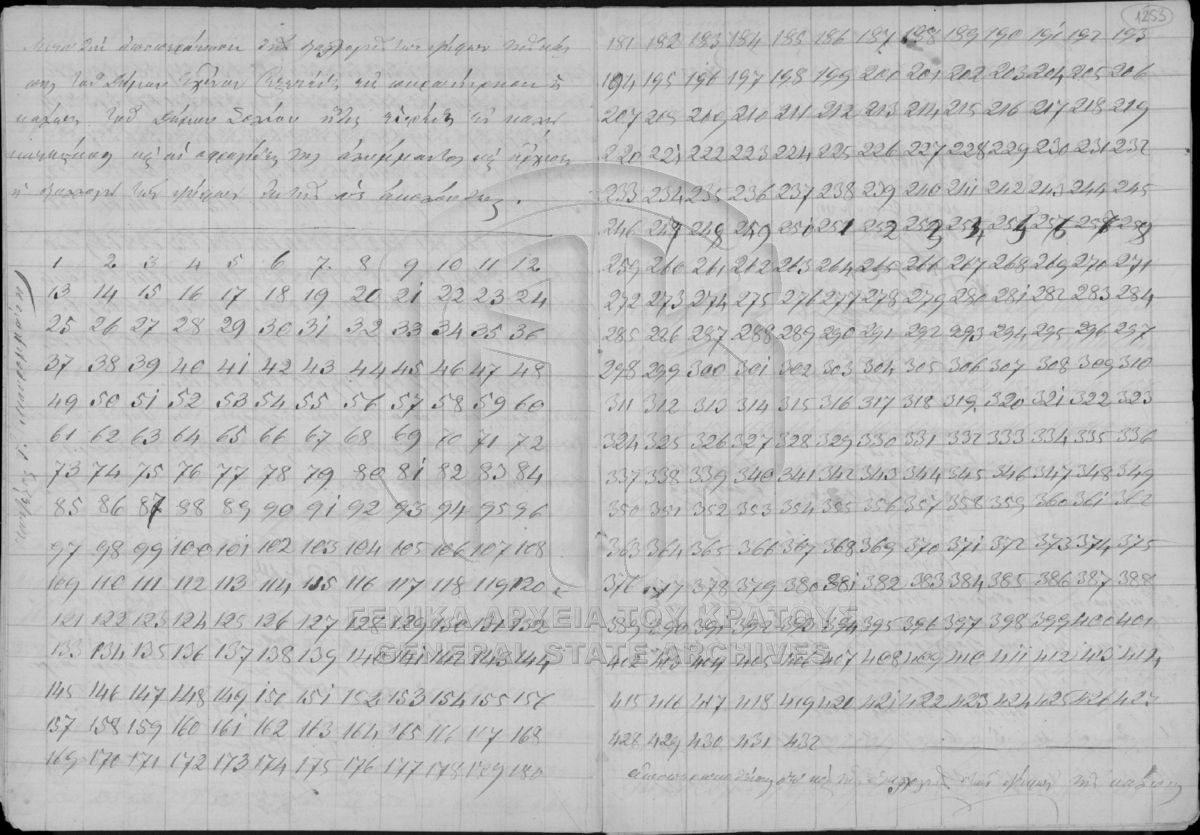 Μετὰ τὴν ἀποπεράτωσιν τῆς διαλογῆς τῶν ψήφων τῆς κάλ-
πης τοῦ Δήμου
κάλπη τοῦ Δήμου
αἱ σφραγῖδες τῆς
ἡ διαλογὴ τῶν ψήφων
1 2 3 4 5 6 7 8 9 10 11 12
13 14 15 16 17 18 19 20 21 22 23 24
25 26 27 28 29 30 31 32 33 34 35 36
37 38 39 40 41 42 43 44 45 46 47 48
49 50 51 52 53 54 55 56 57 58 59 60
61 62 63 64 65 66 67 68 69 70 71 72
73 74 75 76 77 78 79 80 81 82 83 84
85 86 87 88 89 90 91 92 93 94 95 96
97 98 99 100 101 102 103 104 105 106 107 108
109 110 111 112 113 114 115 116 117 118 119 120
121 122 123 124 125 126 127 128 129 130 131 132
133 134 135 136 137 138 139 140 141 142 143 144
145 146 147 148 149 150 151 152 153 154 155 156
157 158 159 160 161 162 163 164 165 166 167 168
169 170 171 172 173 174 175 176 177 178 179 180
1253
181 182 183 184 185 186 187 188 189 190 191 192 193
194 195 196 197 198 199 200 201 202 203 204 205 206
207 208 209 210 211 212 213 214 215 216 217 218 219
220 221 222 223 224 225 226 227 228 229 230 231 232
233 234 235 236 237 238 239 240 241 242 243 244 245
246 247 248 249 250 251 252 253 254 255 256 257 258
259 260 261 262 263 264 265 266 267 268 269 270 271
272 273 274 275 276 277 278 279 280 281 282 283 284
285 286 287 288 289 290 291 292 293 294 295 296 297
298 299 300 301 302 303 304 305 306 307 308 309 310
311 312 313 314 315 316 317 318 319 320 321 322 323
324 325 326 327 328 329 330 331 332 333 334 335 336
337 338 339 340 341 342 343 344 345 346 347 348 349
350 351 352 353 354 355 356 357 358 359 360 361 362
363 364 365 366 367 368 369 370 371 372 373 374 375
376 377 378 379 380 381 382 383 384 385 386 387 388
389 390 391 392 393 394 395 396 397 398 399 400 401
402 403 404 405 406 407 408 409 410 411 412 413 414
415 416 417 418 419 420 421 422 423 424 425 426 427
428 429 430 431 432
τῆς διαλογῆς τῶν ψήφων τῆς κάλπης
ΓΕΝΙΚΑ ΑΡΧΕΙΑ ΤΟΥ ΚΡΑΤΟΥΣ
GENERAL STATE ARCHIVES